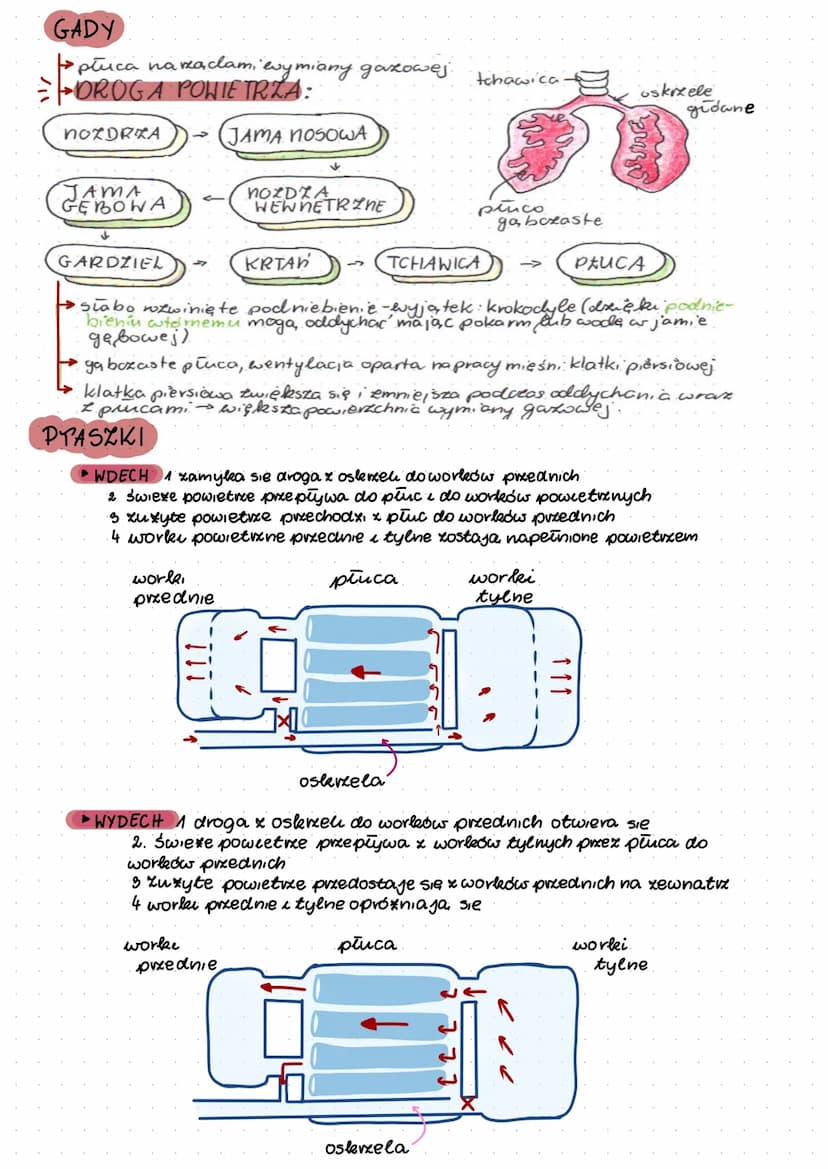 GADY
płuca narządami wymiany gazowej
DROGA POWIETRZA:
tchawica
oskrzele
główne
płuco
gąbczaste
NOZDRZA → JAMA NOSOWA
JAMA GĘBOWA ← NOZDZA WEWNĘTRZNE
GARDZIEL → KRTAŃ → TCHAWICA → PŁUCA
słabo rozwinięte podniebienie - wyjątek: krokodyle (dzięki podnie-
bieniu wtórnemu mogą oddychać mając pokarm lub wodę w jamie
gębowej)
gąbczaste płuca, wentylacja oparta na pracy mięśni klatki piersiowej
klatka piersiowa zwiększa się i zmniejsza podczas oddychania wraz
z płucami → większa powierzchnia wymiany gazowej.
PTASZKI
WDECH 1 zamyka sie droga z oskrzeli do worków przednich
2 świeże powietrze przepływa do płuc i do worków powietrznych
3 zużyte powietrze przechodzi z płuc do worków przednich
4 worki powietrzne przednie i tylne zostają napełnione powietrzem
worki
przednie
płuca
worki
tylne
oskrzela
WYDECH 1 droga z oskrzeli do worków przednich otwiera się
2. świeże powietrze przepływa z worków tylnych przez płuca do
worków przednich
3 zużyte powietrze przedostaje się z worków przednich na zewnątrz
4 worki przednie i tylne opróżniają się
worki
przednie
płuca
worki
tylne
oskrzela